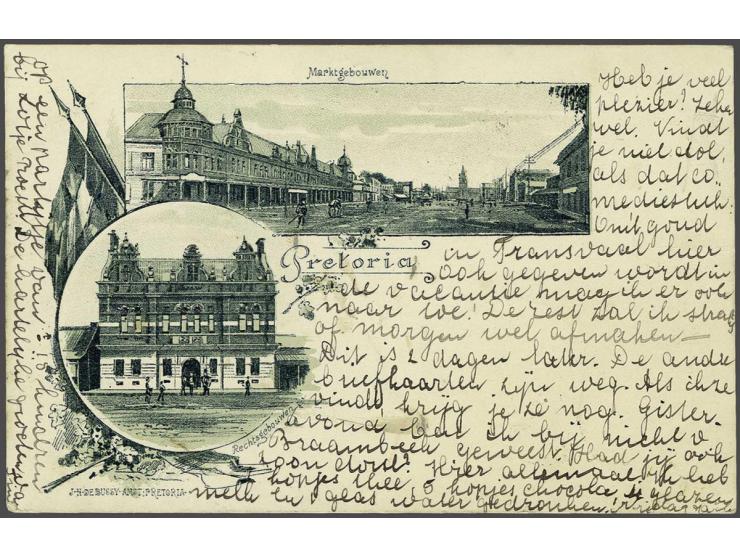 Marktgebouwen
Pretoria
Rechtsgebouwen
J. H. DE BUSSY. AMST: PRETORIA.
Heb je veel
plezier?
wel. Vindt
je niet dol,
als dat co
mediestuk
Om't goud
in Transvaal hier
ook gegeven wordt in
de vacantie mag ik er ook
naar toe! De rest zal ik straks
of morgen wel afmaken—
Dit is 2 dagen later. De andre
briefkaarten zijn weg. Als ik ze
vind, krijg je ze nog. Gister
avond ben ik bij
Braambeek geweest. Had jij ook
zoon dorst? Hier allemaal. Ik heb
kopjes thee 3 kopjes chocola, 4 glazen
melk en 1 glas water gedronken,
op een partijtje van 18 kinderen
bij